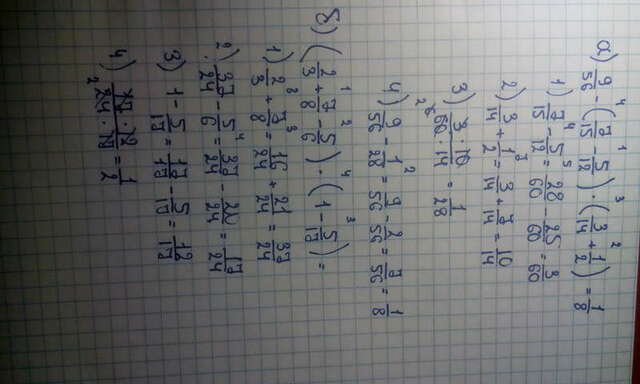 а) 9/56 - (7/15 - 5/12) · (3/14 + 1/2) = 1/8
1) 7/15 - 5/12 = 28/60 - 25/60 = 3/60
2) 3/14 + 1/2 = 3/14 + 7/14 = 10/14
3) 3 · 10 / 60 · 14 = 1/28
4) 9/56 - 1/28 = 9/56 - 2/56 = 7/56 = 1/8
б) (2/3 + 7/8 - 5/6) · (1 - 5/17) =
1) 2/3 + 7/8 = 16/24 + 21/24 = 37/24
2) 37/24 - 5/6 = 37/24 - 20/24 = 17/24
3) 1 - 5/17 = 17/17 - 5/17 = 12/17
4) 17 · 12 / 24 · 17 = 1/2